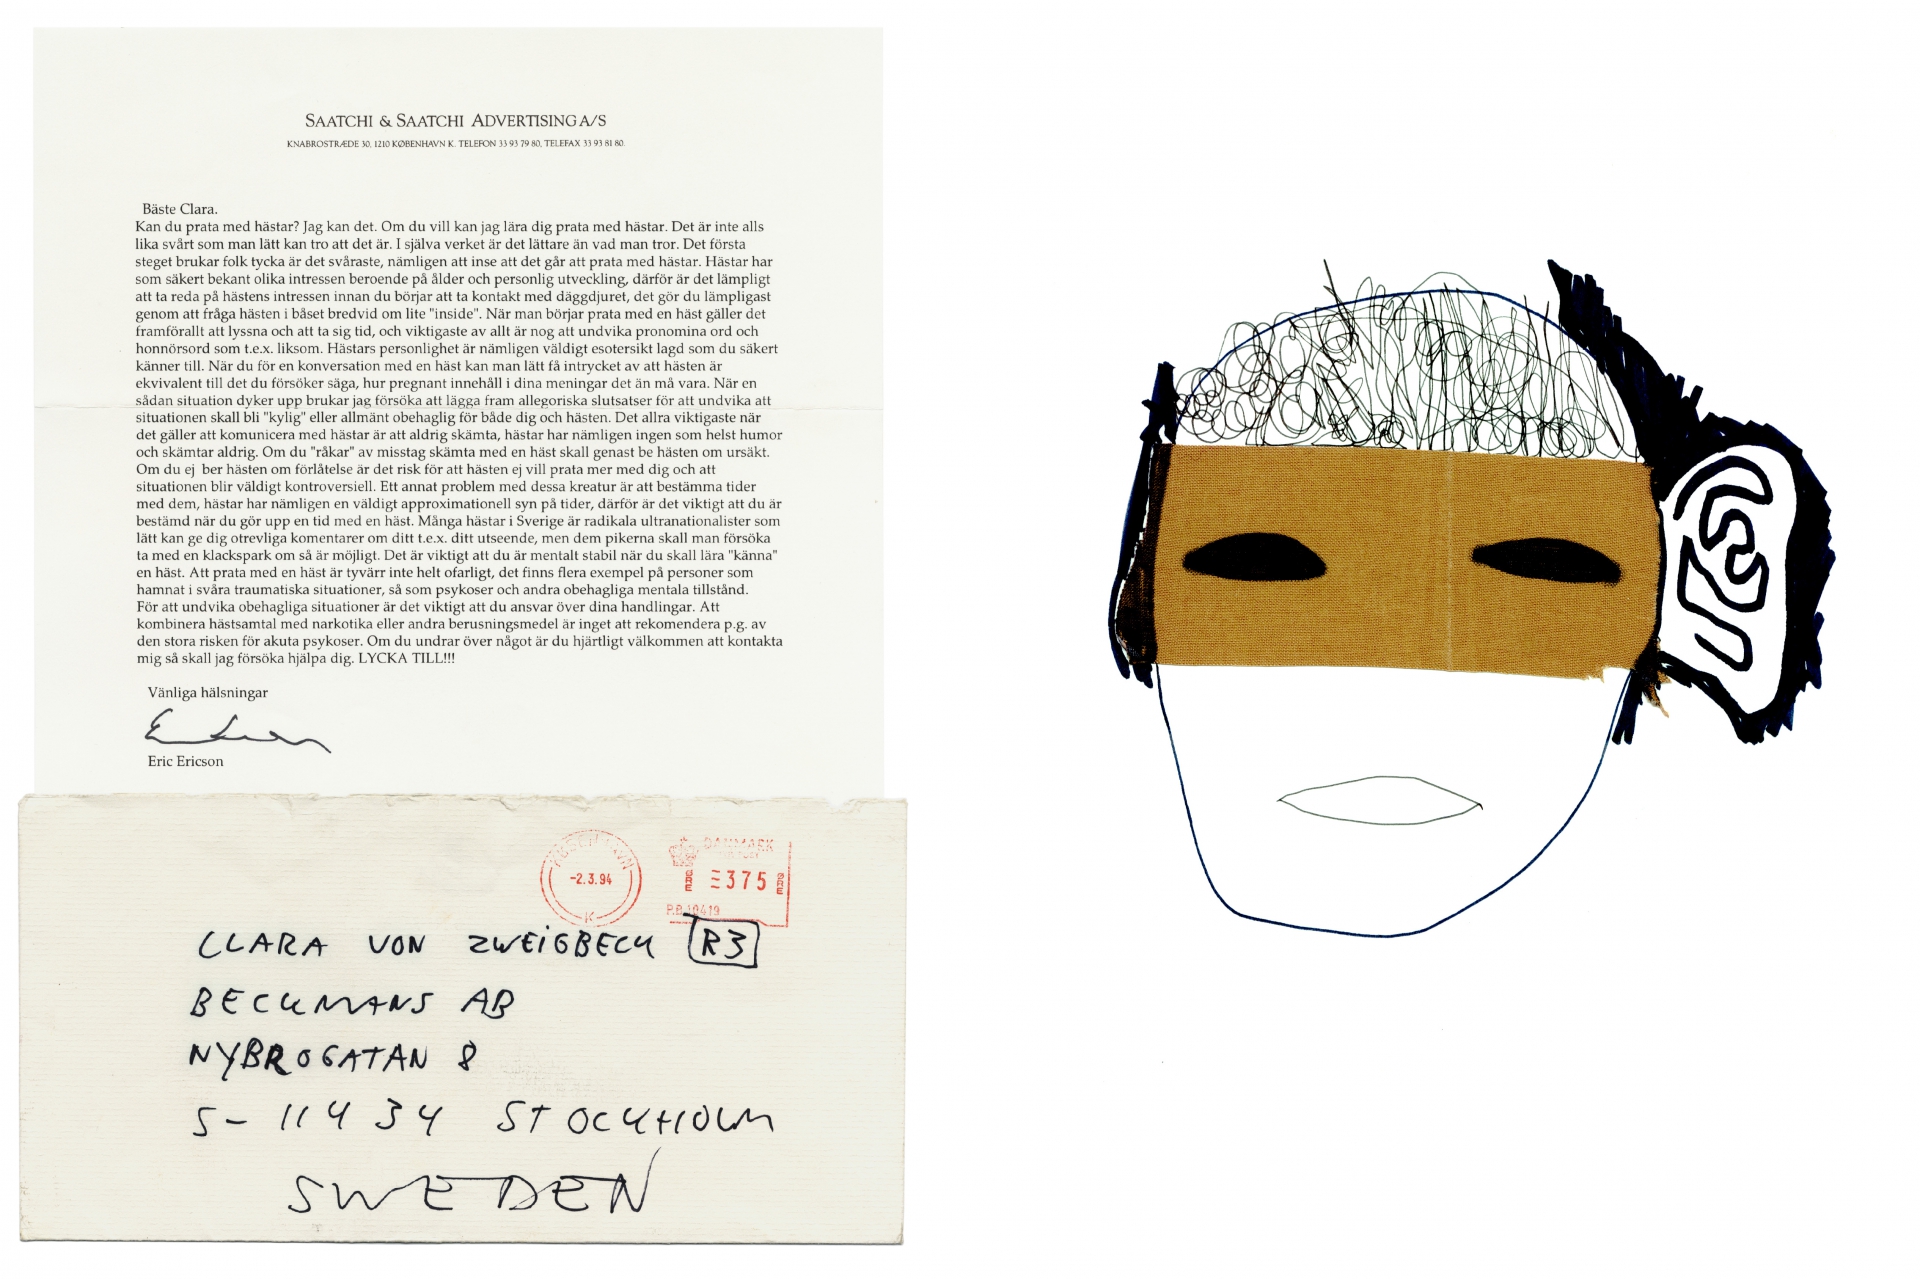 SAATCHI & SAATCHI ADVERTISING A/S
KNABROSTRÆDE 30, 1210 KØBENHAVN K. TELEFON 33 93 79 80, TELEFAX 33 93 81 80.
Bäste Clara.
Kan du prata med hästar? Jag kan det. Om du vill kan jag lära dig prata med hästar. Det är inte alls
lika svårt som man lätt kan tro att det är. I själva verket är det lättare än vad man tror. Det första
steget brukar folk tycka är det svåraste, nämligen att inse att det går att prata med hästar. Hästar har
som säkert bekant olika intressen beroende på ålder och personlig utveckling, därför är det lämpligt
att ta reda på hästens intressen innan du börjar att ta kontakt med däggdjuret, det gör du lämpligast
genom att fråga hästen i båset bredvid om lite "inside". När man börjar prata med en häst gäller det
framförallt att lyssna och att ta sig tid, och viktigaste av allt är nog att undvika pronomina ord och
honnörsord som t.e.x. liksom. Hästars personlighet är nämligen väldigt esotersikt lagd som du säkert
känner till. När du för en konversation med en häst kan man lätt få intrycket av att hästen är
ekvivalent till det du försöker säga, hur pregnant innehåll i dina meningar det än må vara. När en
sådan situation dyker upp brukar jag försöka att lägga fram allegoriska slutsatser för att undvika att
situationen skall bli "kylig" eller allmänt obehaglig för både dig och hästen. Det allra viktigaste när
det gäller att komunicera med hästar är att aldrig skämta, hästar har nämligen ingen som helst humor
och skämtar aldrig. Om du "råkar" av misstag skämta med en häst skall genast be hästen om ursäkt.
Om du ej ber hästen om förlåtelse är det risk för att hästen ej vill prata mer med dig och att
situationen blir väldigt kontroversiell. Ett annat problem med dessa kreatur är att bestämma tider
med dem, hästar har nämligen en väldigt approximationell syn på tider, därför är det viktigt att du är
bestämd när du gör upp en tid med en häst. Många hästar i Sverige är radikala ultranationalister som
lätt kan ge dig otrevliga komentarer om ditt t.e.x. ditt utseende, men dem pikerna skall man försöka
ta med en klackspark om så är möjligt. Det är viktigt att du är mentalt stabil när du skall lära "känna"
en häst. Att prata med en häst är tyvärr inte helt ofarligt, det finns flera exempel på personer som
hamnat i svåra traumatiska situationer, så som psykoser och andra obehagliga mentala tillstånd.
För att undvika obehagliga situationer är det viktigt att du ansvar över dina handlingar. Att
kombinera hästsamtal med narkotika eller andra berusningsmedel är inget att rekomendera p.g. av
den stora risken för akuta psykoser. Om du undrar över något är du hjärtligt välkommen att kontakta
mig så skall jag försöka hjälpa dig. LYCKA TILL!!!
Vänliga hälsningar
Eric Ericson
KØBENHAVN
-2.3.94
K
DANMARK
ØRE 375 ØRE
P.B. 19419
CLARA VON ZWEIGBECK R3
BECKMANS AB
NYBROGATAN 8
S-114 34 STOCKHOLM
SWEDEN